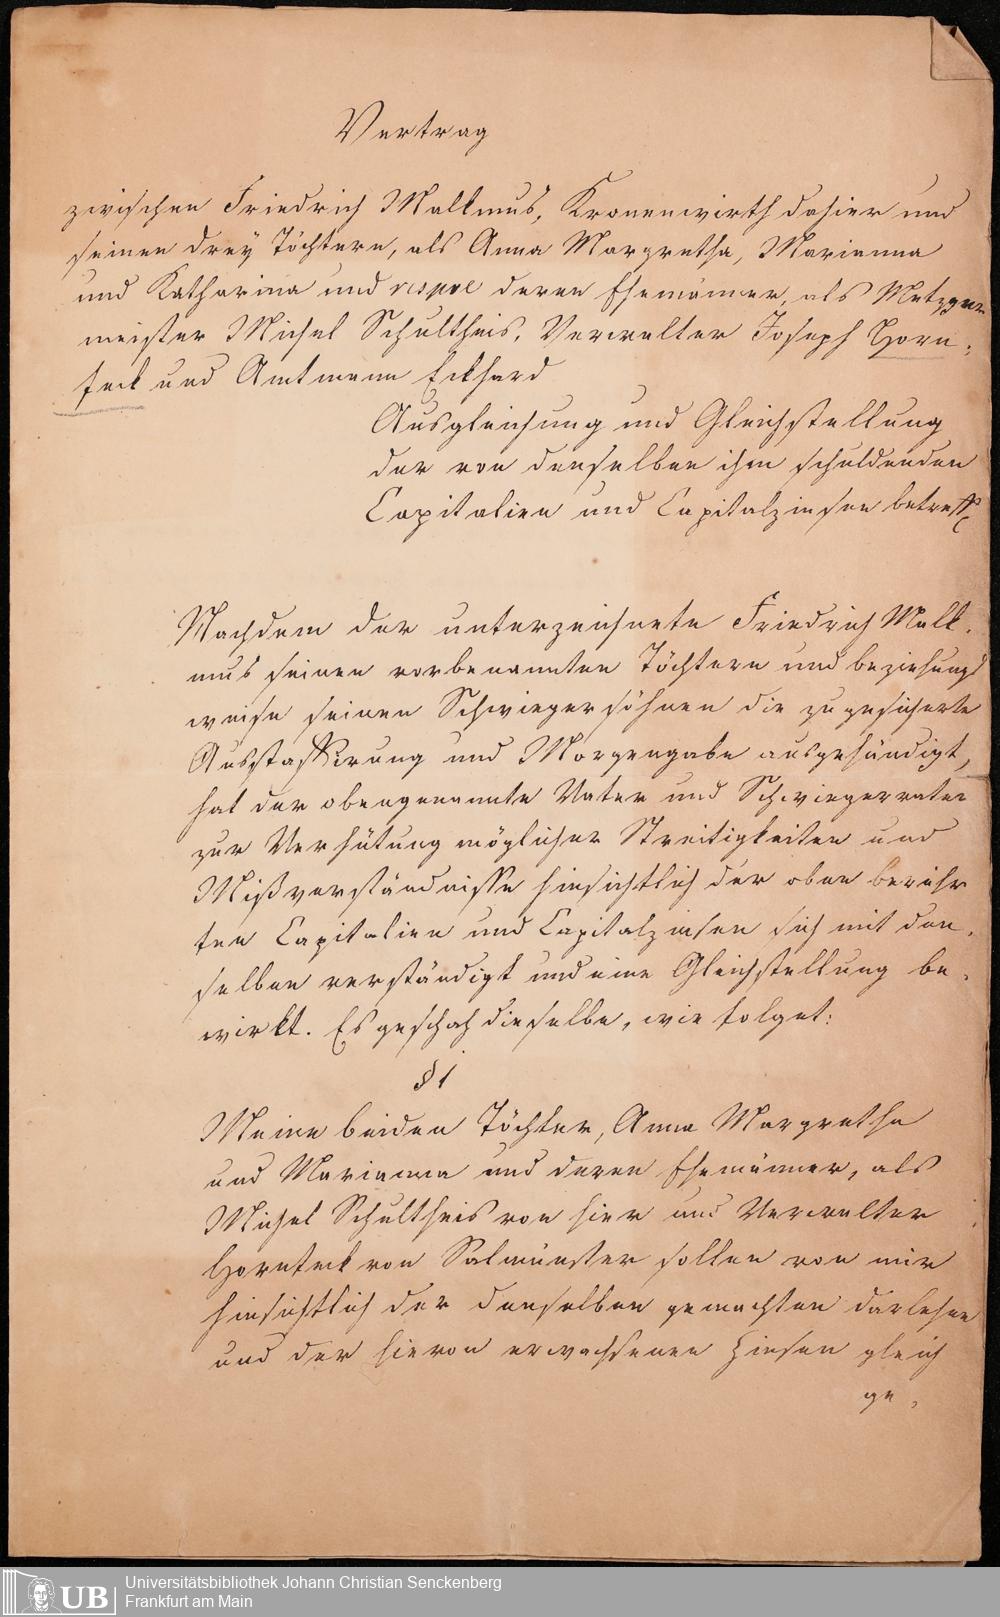 Vertrag
zwischen Friedrich Malkmus, Kronenwirth dahier und
seinen drey Töchtern, als Anna Margretha, Marianna
und Katharina und respve deren Ehemänner, als Metzger
meister Michel Schultheis, Verwalter Joseph Horn,
feck und Amtmann Eckhard
Ausgleichung und Gleichstellung
der von denselben ihm schuldenden
Capitalien und Capitalzinsen betreff
Nachdem der unterzeichnete Friedrich Malk,
mus seinen vorbenannten Töchtern und beziehungs
weise seinen Schwiegersöhnen die zugesicherte
Ausstaffirung und Morgengabe ausgehändigt,
hat der obengenannte Vater und Schwiegervater
zur Verhütung möglicher Streitigkeiten und
Mißverständnisse hinsichtlich der oben berühr
ten Capitalien und Capitalzinsen sich mit den,
selben verständigt und eine Gleichstellung be,
wirkt. Es geschah dieselbe, wie folget:
§ 1
Meine beiden Töchter, Anna Margretha
und Marianna und deren Ehemänner, als
Michel Schultheis von hier und Verwalter
Hornfeck von Salmünster sollen von mir
hinsichtlich der denselben gemachten Darlehne
und der hievon erwachsenen Zinsen gleich
ge,
Universitätsbibliothek Johann Christian Senckenberg
UB Frankfurt am Main